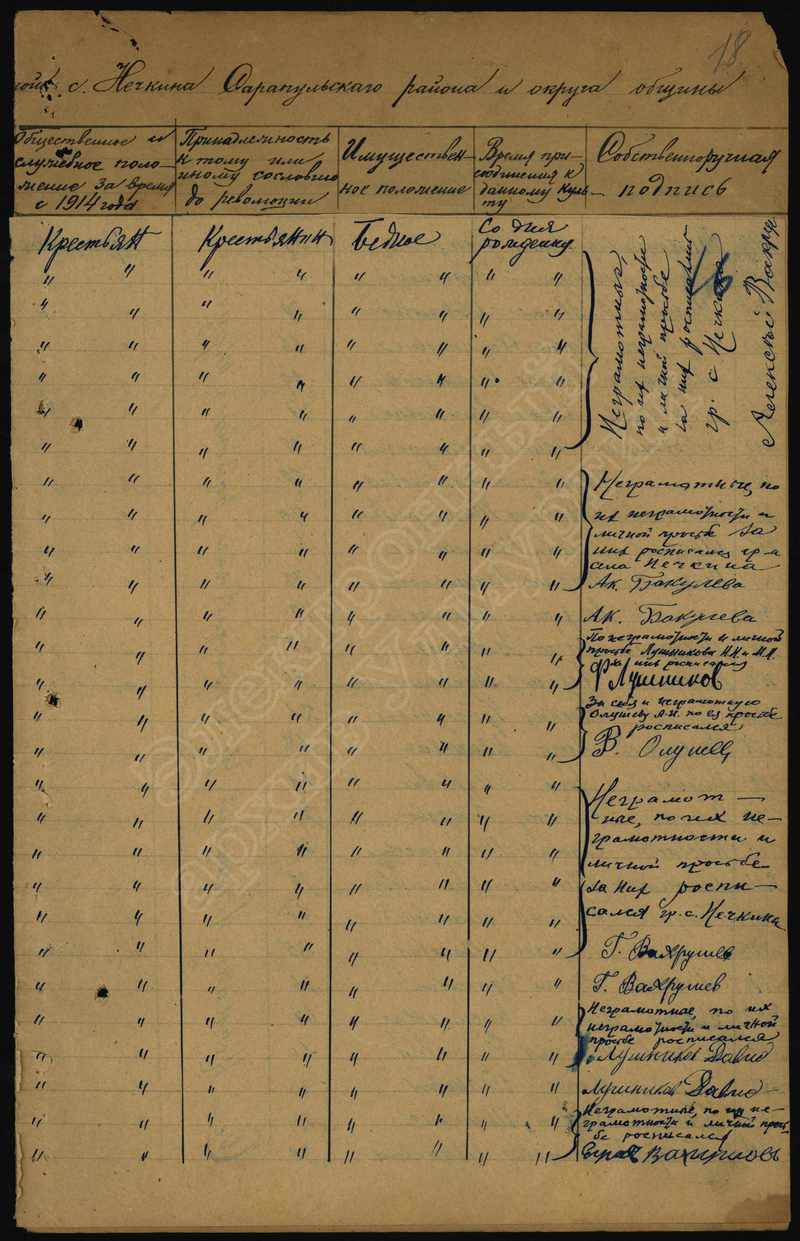 18
с. Нечкина Сарапульскаго района и округа общины
Общественное и
служебное поло-
жение за время
с 1914 года
Принадлежность
к тому или
иному сословию
до революции
Имуществен-
ное положение
Время при-
соединения к
данному куль-
ту
Собственноручная
подпись
Крестьян Крестьянин Бедное Со дня
рождения
Неграмотная,
по их неграмотности
и личной просьбе
за них
гр. с Нечкина
Алексей
Неграмотные, по
их неграмотности и
личной просьбе за
них росписалась гр-а
села Нечкина
Ак. Бакулева
Ак. Бакулева
По неграмотности и личной
просьбе Лушникова Н.Н. и М.Я.
росписался
Лушников
За себя и неграмотную
Олушеву А.И. по ея просьбе
росписался
В. Олушев
Неграмот-
ные, по их не-
грамотности и
личной просьбе
за них роспи-
сался гр. с. Нечкина
Г. Вахрушев
Г. Вахрушев
Неграмотные, по их
неграмотности и личной
просьбе росписался
Лушников Давид
Лушников Давид
Неграмотные, по их не-
грамотности и личной прось-
бе росписался
Вахрушев